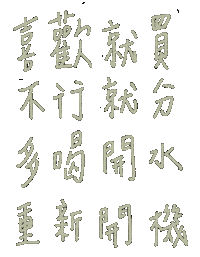 喜歡就買
不行就分
多喝開水
重新開機